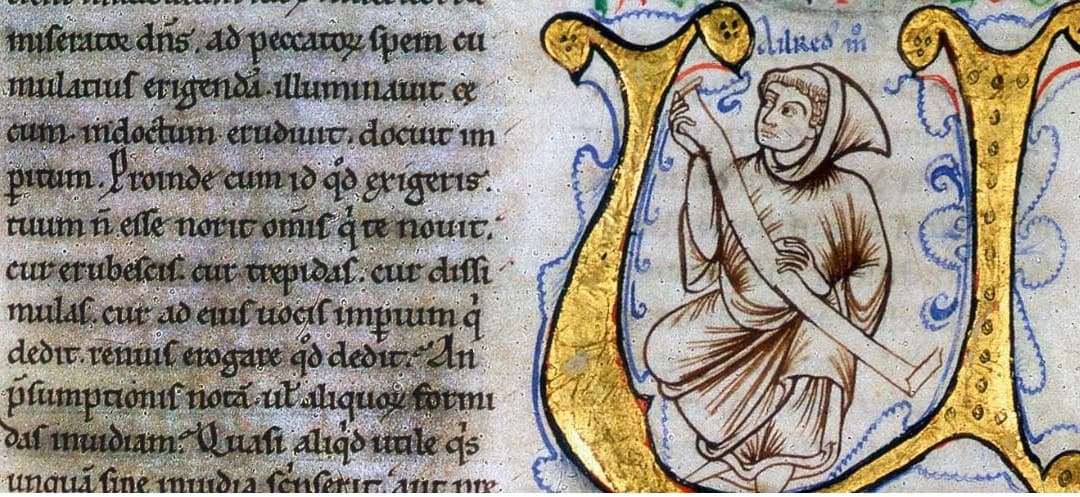 miserator dn̄s. ad peccatoꝝ spem cu
mulatius erigendā. illuminauit ce
cum. indoctum erudiuit. docuit im
ꝑitum. Proinde cum id qd̓ exigeris.
tuum n̄ esse norit om̄is q̓ te nouit.
cur erubescis. cur trepidas. cur dissi
mulas. cur ad eius uocis imꝑium q̓
dedit. renuis erogare qd̓ dedit. An
p̄sumptionis notā. ul̓ aliquoꝝ formi
das inuidiam. Quasi aliq̓d utile q̓s
unquā sine inuidia sc̓pserit. aut
Ailred m̄